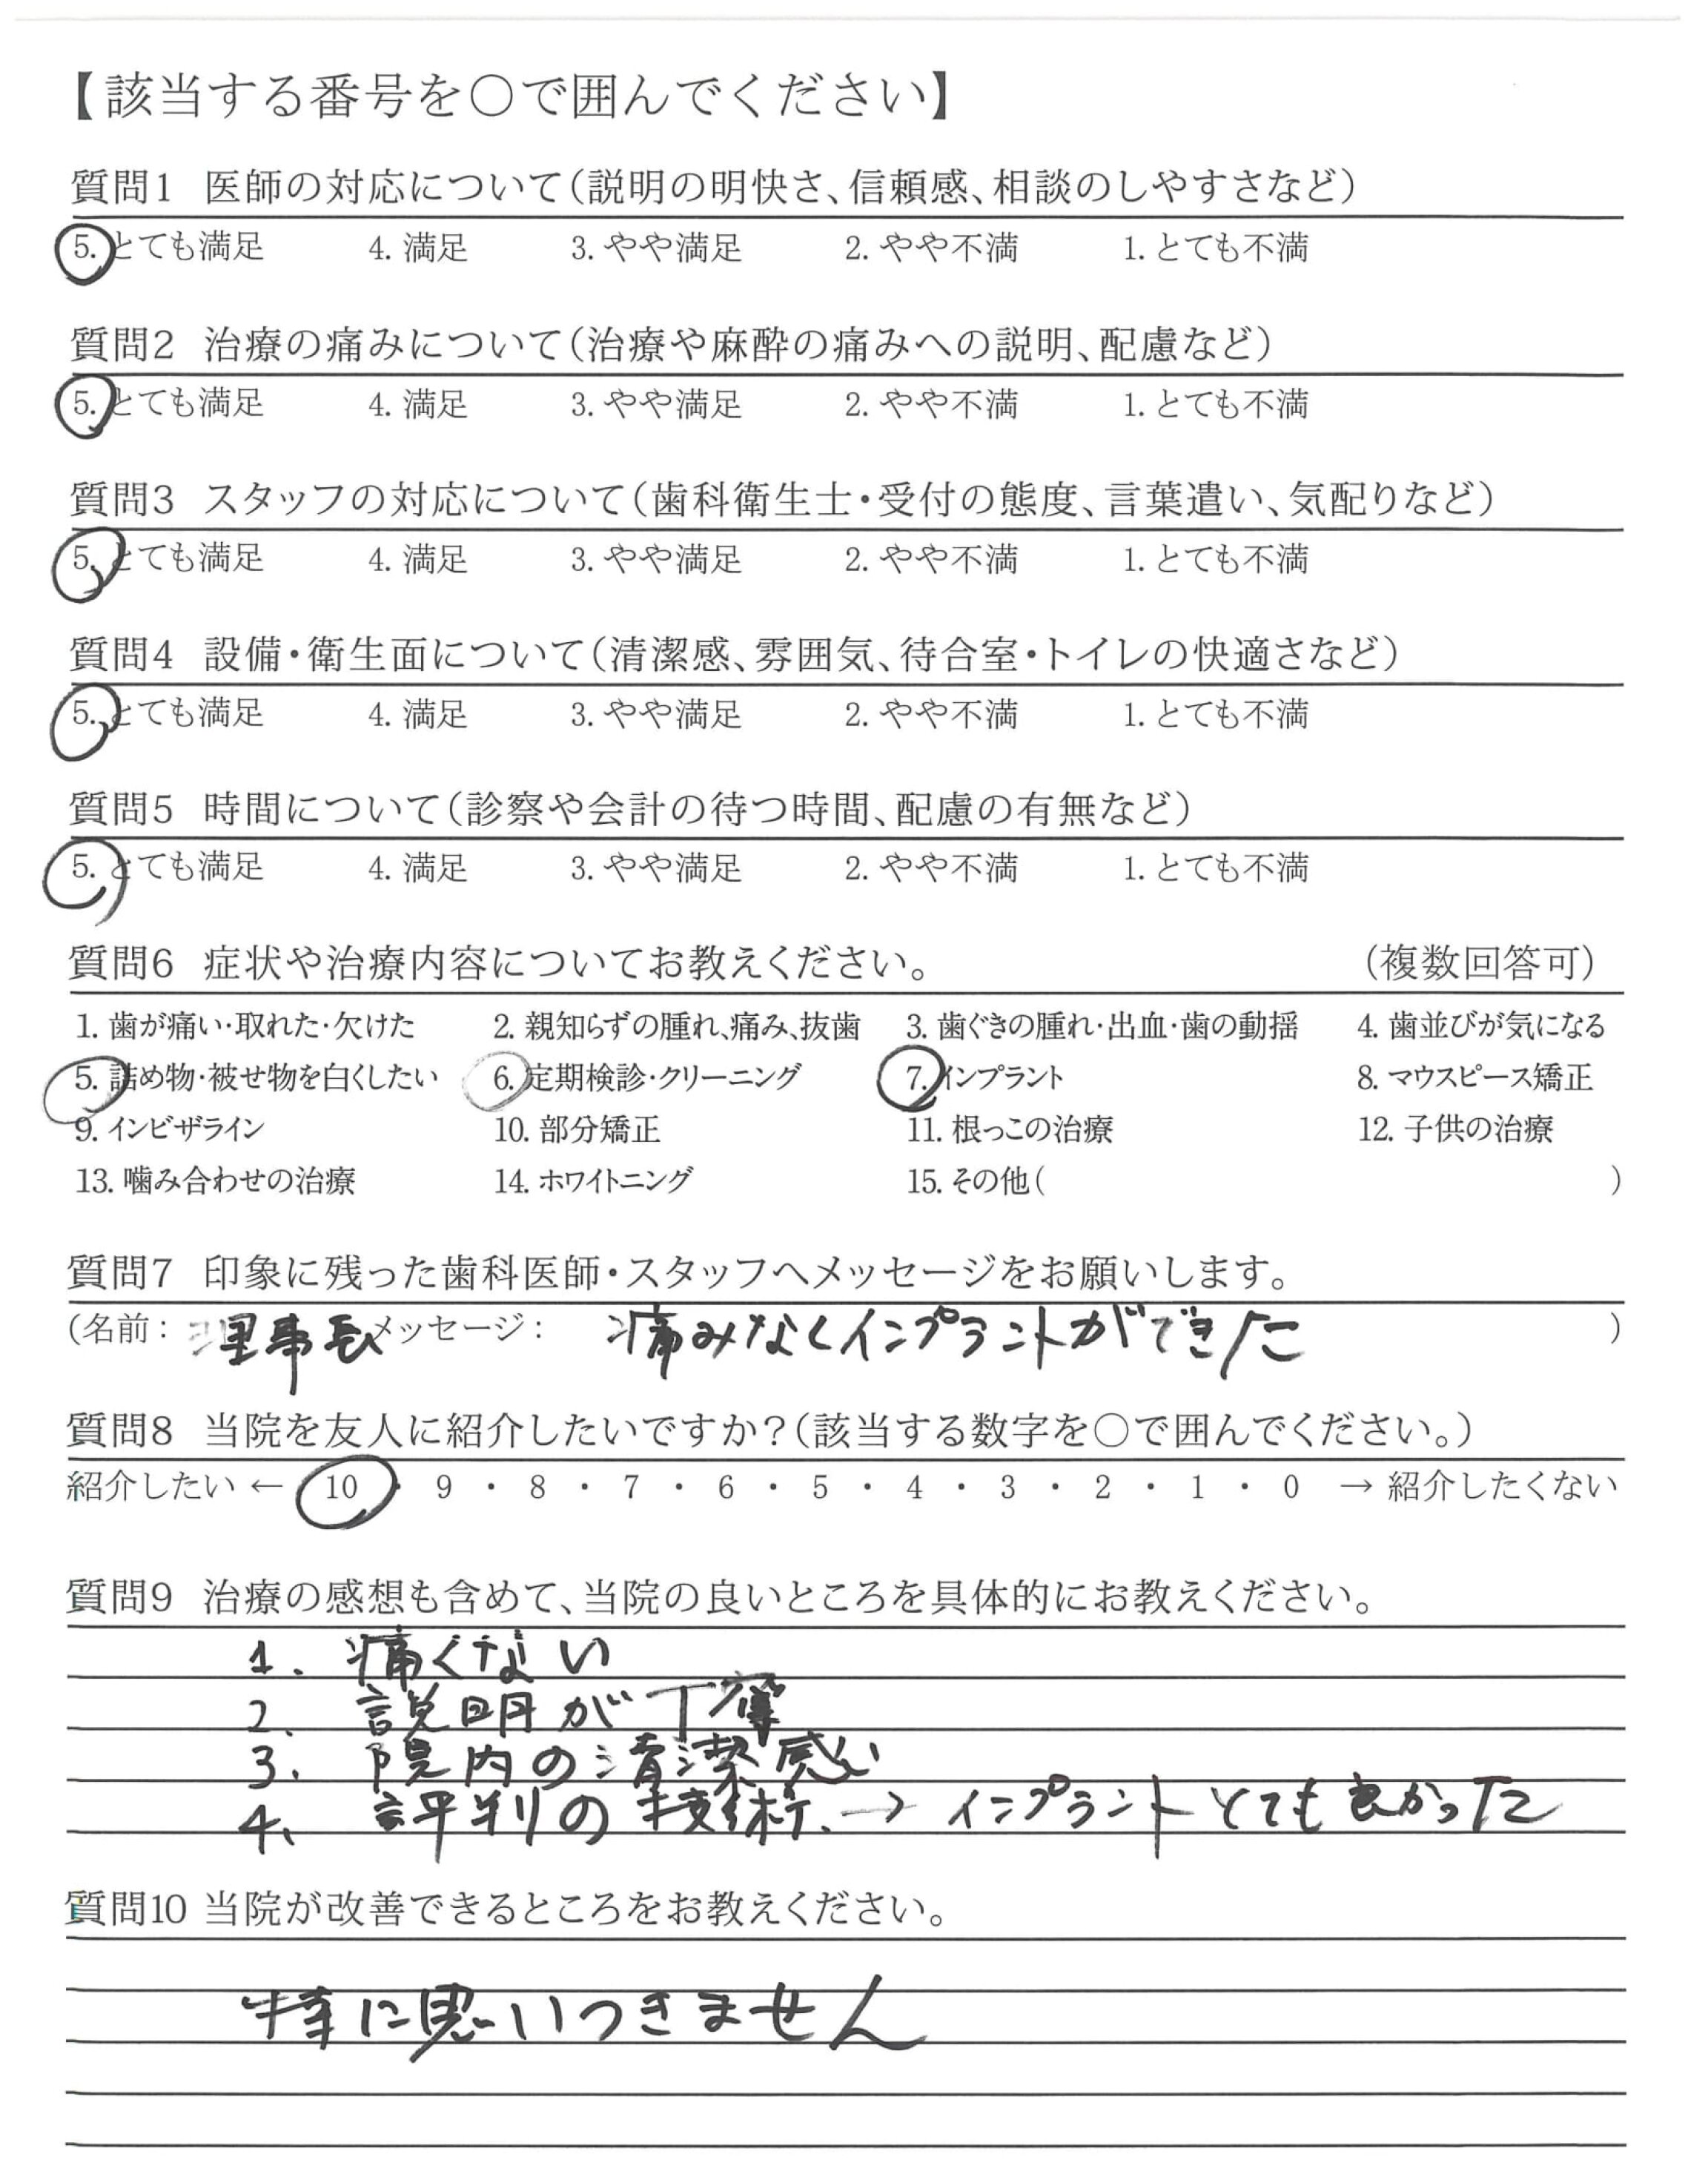 【該当する番号を○で囲んでください】
質問1 医師の対応について(説明の明快さ、信頼感、相談のしやすさなど)
5. とても満足 4. 満足 3. やや満足 2. やや不満 1. とても不満
質問2 治療の痛みについて(治療や麻酔の痛みへの説明、配慮など)
5. とても満足 4. 満足 3. やや満足 2. やや不満 1. とても不満
質問3 スタッフの対応について(歯科衛生士・受付の態度、言葉遣い、気配りなど)
5. とても満足 4. 満足 3. やや満足 2. やや不満 1. とても不満
質問4 設備・衛生面について(清潔感、雰囲気、待合室・トイレの快適さなど)
5. とても満足 4. 満足 3. やや満足 2. やや不満 1. とても不満
質問5 時間について(診察や会計の待つ時間、配慮の有無など)
5. とても満足 4. 満足 3. やや満足 2. やや不満 1. とても不満
質問6 症状や治療内容についてお教えください。 (複数回答可)
1. 歯が痛い・取れた・欠けた 2. 親知らずの腫れ、痛み、抜歯 3. 歯ぐきの腫れ・出血・歯の動揺 4. 歯並びが気になる
5. 詰め物・被せ物を白くしたい 6. 定期検診・クリーニング 7. インプラント 8. マウスピース矯正
9. インビザライン 10. 部分矯正 11. 根っこの治療 12. 子供の治療
13. 噛み合わせの治療 14. ホワイトニング 15. その他( )
質問7 印象に残った歯科医師・スタッフへメッセージをお願いします。
(名前: 理事長 メッセージ: 痛みなくインプラントができた )
質問8 当院を友人に紹介したいですか?(該当する数字を○で囲んでください。)
紹介したい ← 10 ・ 9 ・ 8 ・ 7 ・ 6 ・ 5 ・ 4 ・ 3 ・ 2 ・ 1 ・ 0 → 紹介したくない
質問9 治療の感想も含めて、当院の良いところを具体的にお教えください。
1. 痛くない
2. 説明が丁寧
3. 院内の清潔感
4. 評判の技術. → インプラントとても良かった
質問10 当院が改善できるところをお教えください。
特に思いつきません